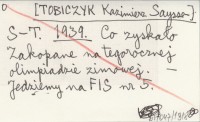 [TOBICZYK Kazimierz Saysse-]
S-T. 1939. Co zyskało
Zakopane na tegorocznej
olimpiadzie zimowej.
Jedziemy na FIS nr 5.